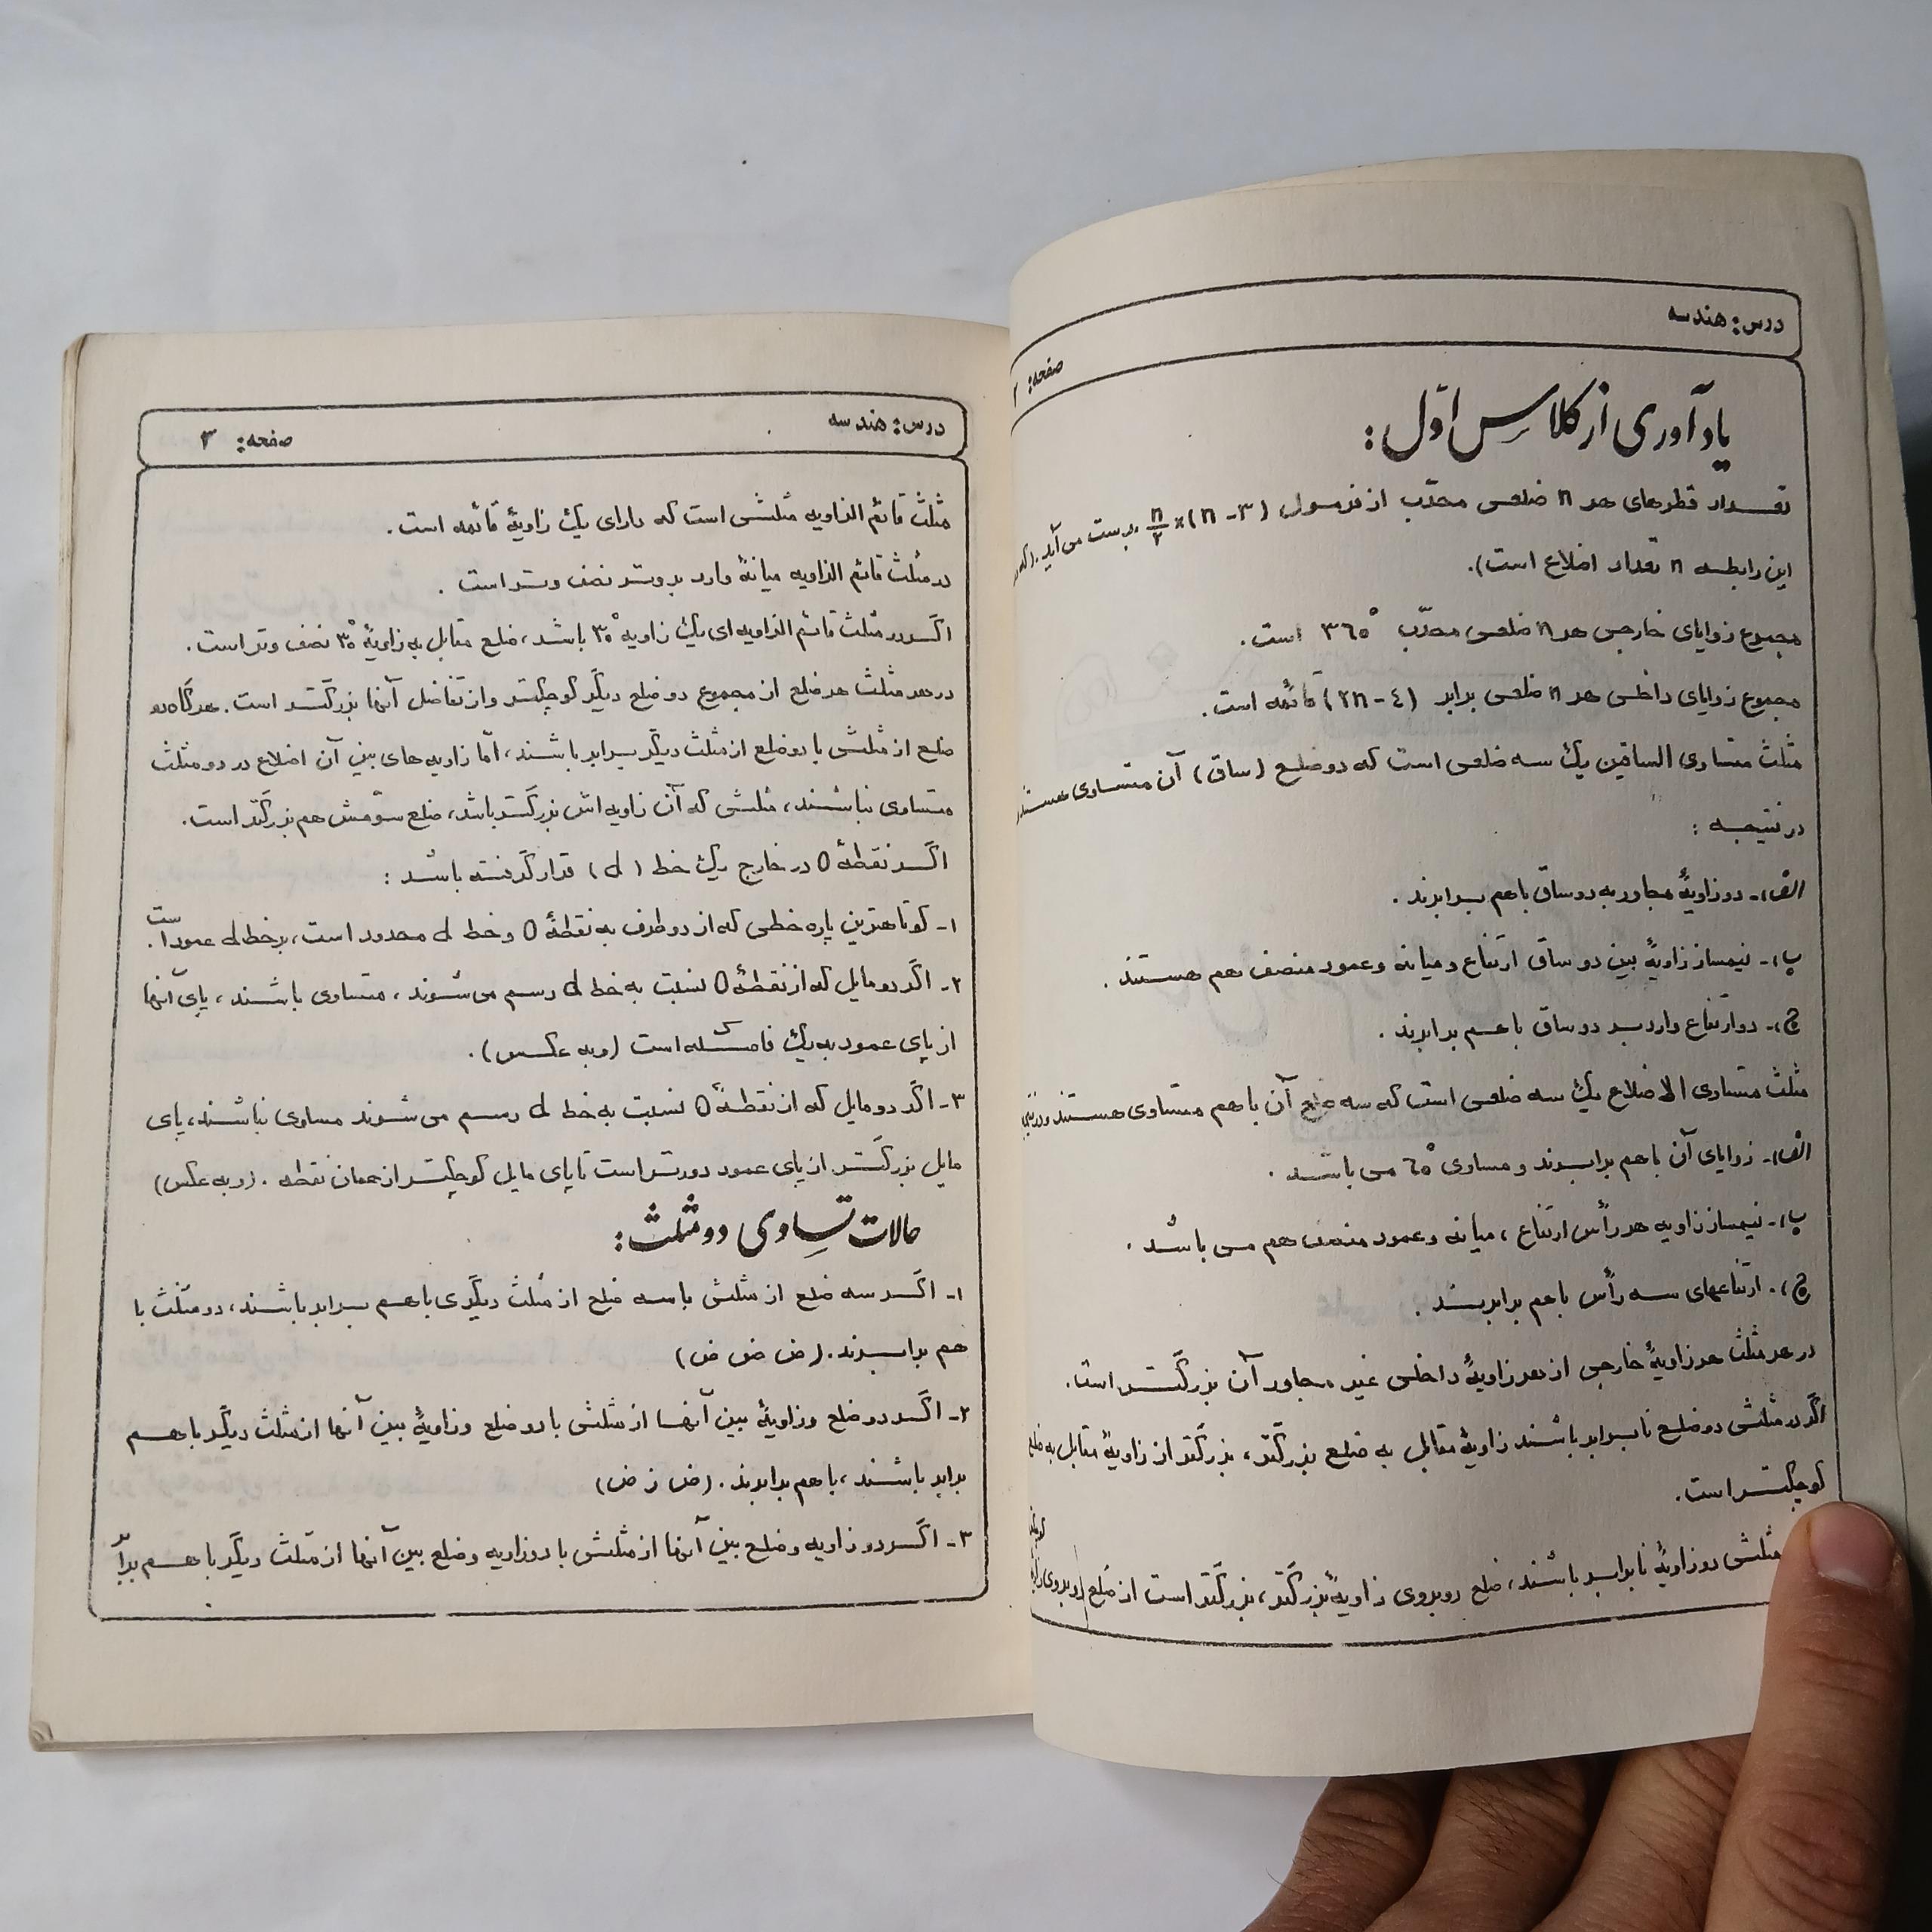 درس: هندسه
صفحه: ۲
یادآوری از کلاس اوّل:
تعداد قطرهای هر n ضلعی محدّب از فرمول (n-۳)×n/۲ بدست می‌آید. (که در
این رابطه n تعداد اضلاع است).
مجموع زوایای خارجی هر n ضلعی محدّب ۳۶۰° است.
مجموع زوایای داخلی هر n ضلعی برابر (۲n-۴) قائمه است.
مثلث متساوی الساقین یک سه ضلعی است که دو ضلع (ساق) آن متساوی هستند
در نتیجه :
الف)- دو زاویهٔ مجاور به دو ساق باهم برابرند.
ب)- نیمساز زاویهٔ بین دو ساق ارتفاع و میانه و عمود منصف هم هستند.
ج)- دو ارتفاع وارد بر دو ساق باهم برابرند.
مثلث متساوی الاضلاع یک سه ضلعی است که سه ضلع آن باهم متساوی هستند و در
الف)- زوایای آن باهم برابرند و مساوی ۶۰° می باشد.
ب)- نیمساز زاویه هر رأس ارتفاع، میانه و عمود منصف هم می باشد.
ج)- ارتفاعهای سه رأس باهم برابرند.
در هر مثلث هر زاویهٔ خارجی از هر زاویهٔ داخلی غیر مجاور آن بزرگتر است.
اگر در مثلثی دو ضلع نابرابر باشند زاویهٔ مقابل به ضلع بزرگتر، بزرگتر از زاویهٔ مقابل به ضلع
کوچکتر است.
مثلثی دو زاویهٔ نابرابر باشند، ضلع روبروی زاویهٔ بزرگتر، بزرگتر است از ضلع روبروی
درس: هندسه
صفحه: ۳
مثلث قائم الزاویه مثلثی است که دارای یک زاویهٔ قائمه است.
در مثلث قائم الزاویه میانهٔ وارد بر وتر نصف وتر است.
اگر در مثلث قائم الزاویه ای یک زاویه ۳۰° باشد، ضلع مقابل به زاویهٔ ۳۰° نصف وتر است.
در هر مثلث هر ضلع از مجموع دو ضلع دیگر کوچکتر و از تفاضل آنها بزرگتر است. هرگاه دو
ضلع از مثلثی با دو ضلع از مثلث دیگر برابر باشند، امّا زاویه های بین آن اضلاع در دو مثلث
متساوی نباشند، مثلثی که آن زاویه اش بزرگتر باشد، ضلع سوّمش هم بزرگتر است.
اگر نقطهٔ O در خارج یک خط (d) قرار گرفته باشد:
۱- کوتاهترین پاره خطی که از دو طرف به نقطهٔ O و خط d محدود است، بر خط d عمود است.
۲- اگر دو مایل که از نقطهٔ O نسبت به خط d رسم می شوند، متساوی باشند، پای آنها
از پای عمود به یک فاصله است (و به عکس).
۳- اگر دو مایل که از نقطهٔ O نسبت به خط d رسم می شوند مساوی نباشند، پای
مایل بزرگتر از پای عمود دورتر است تا پای مایل کوچکتر از همان نقطه. (و به عکس)
حالات تساوی دو مثلث:
۱- اگر سه ضلع از مثلثی با سه ضلع از مثلث دیگری باهم برابر باشند، دو مثلث با
هم برابرند. (ض ض ض)
۲- اگر دو ضلع و زاویهٔ بین آنها از مثلثی با دو ضلع و زاویهٔ بین آنها از مثلث دیگر باهم
برابر باشند، باهم برابرند. (ض ز ض)
۳- اگر دو زاویه و ضلع بین آنها از مثلثی با دو زاویه و ضلع بین آنها از مثلث دیگر باهم برابر